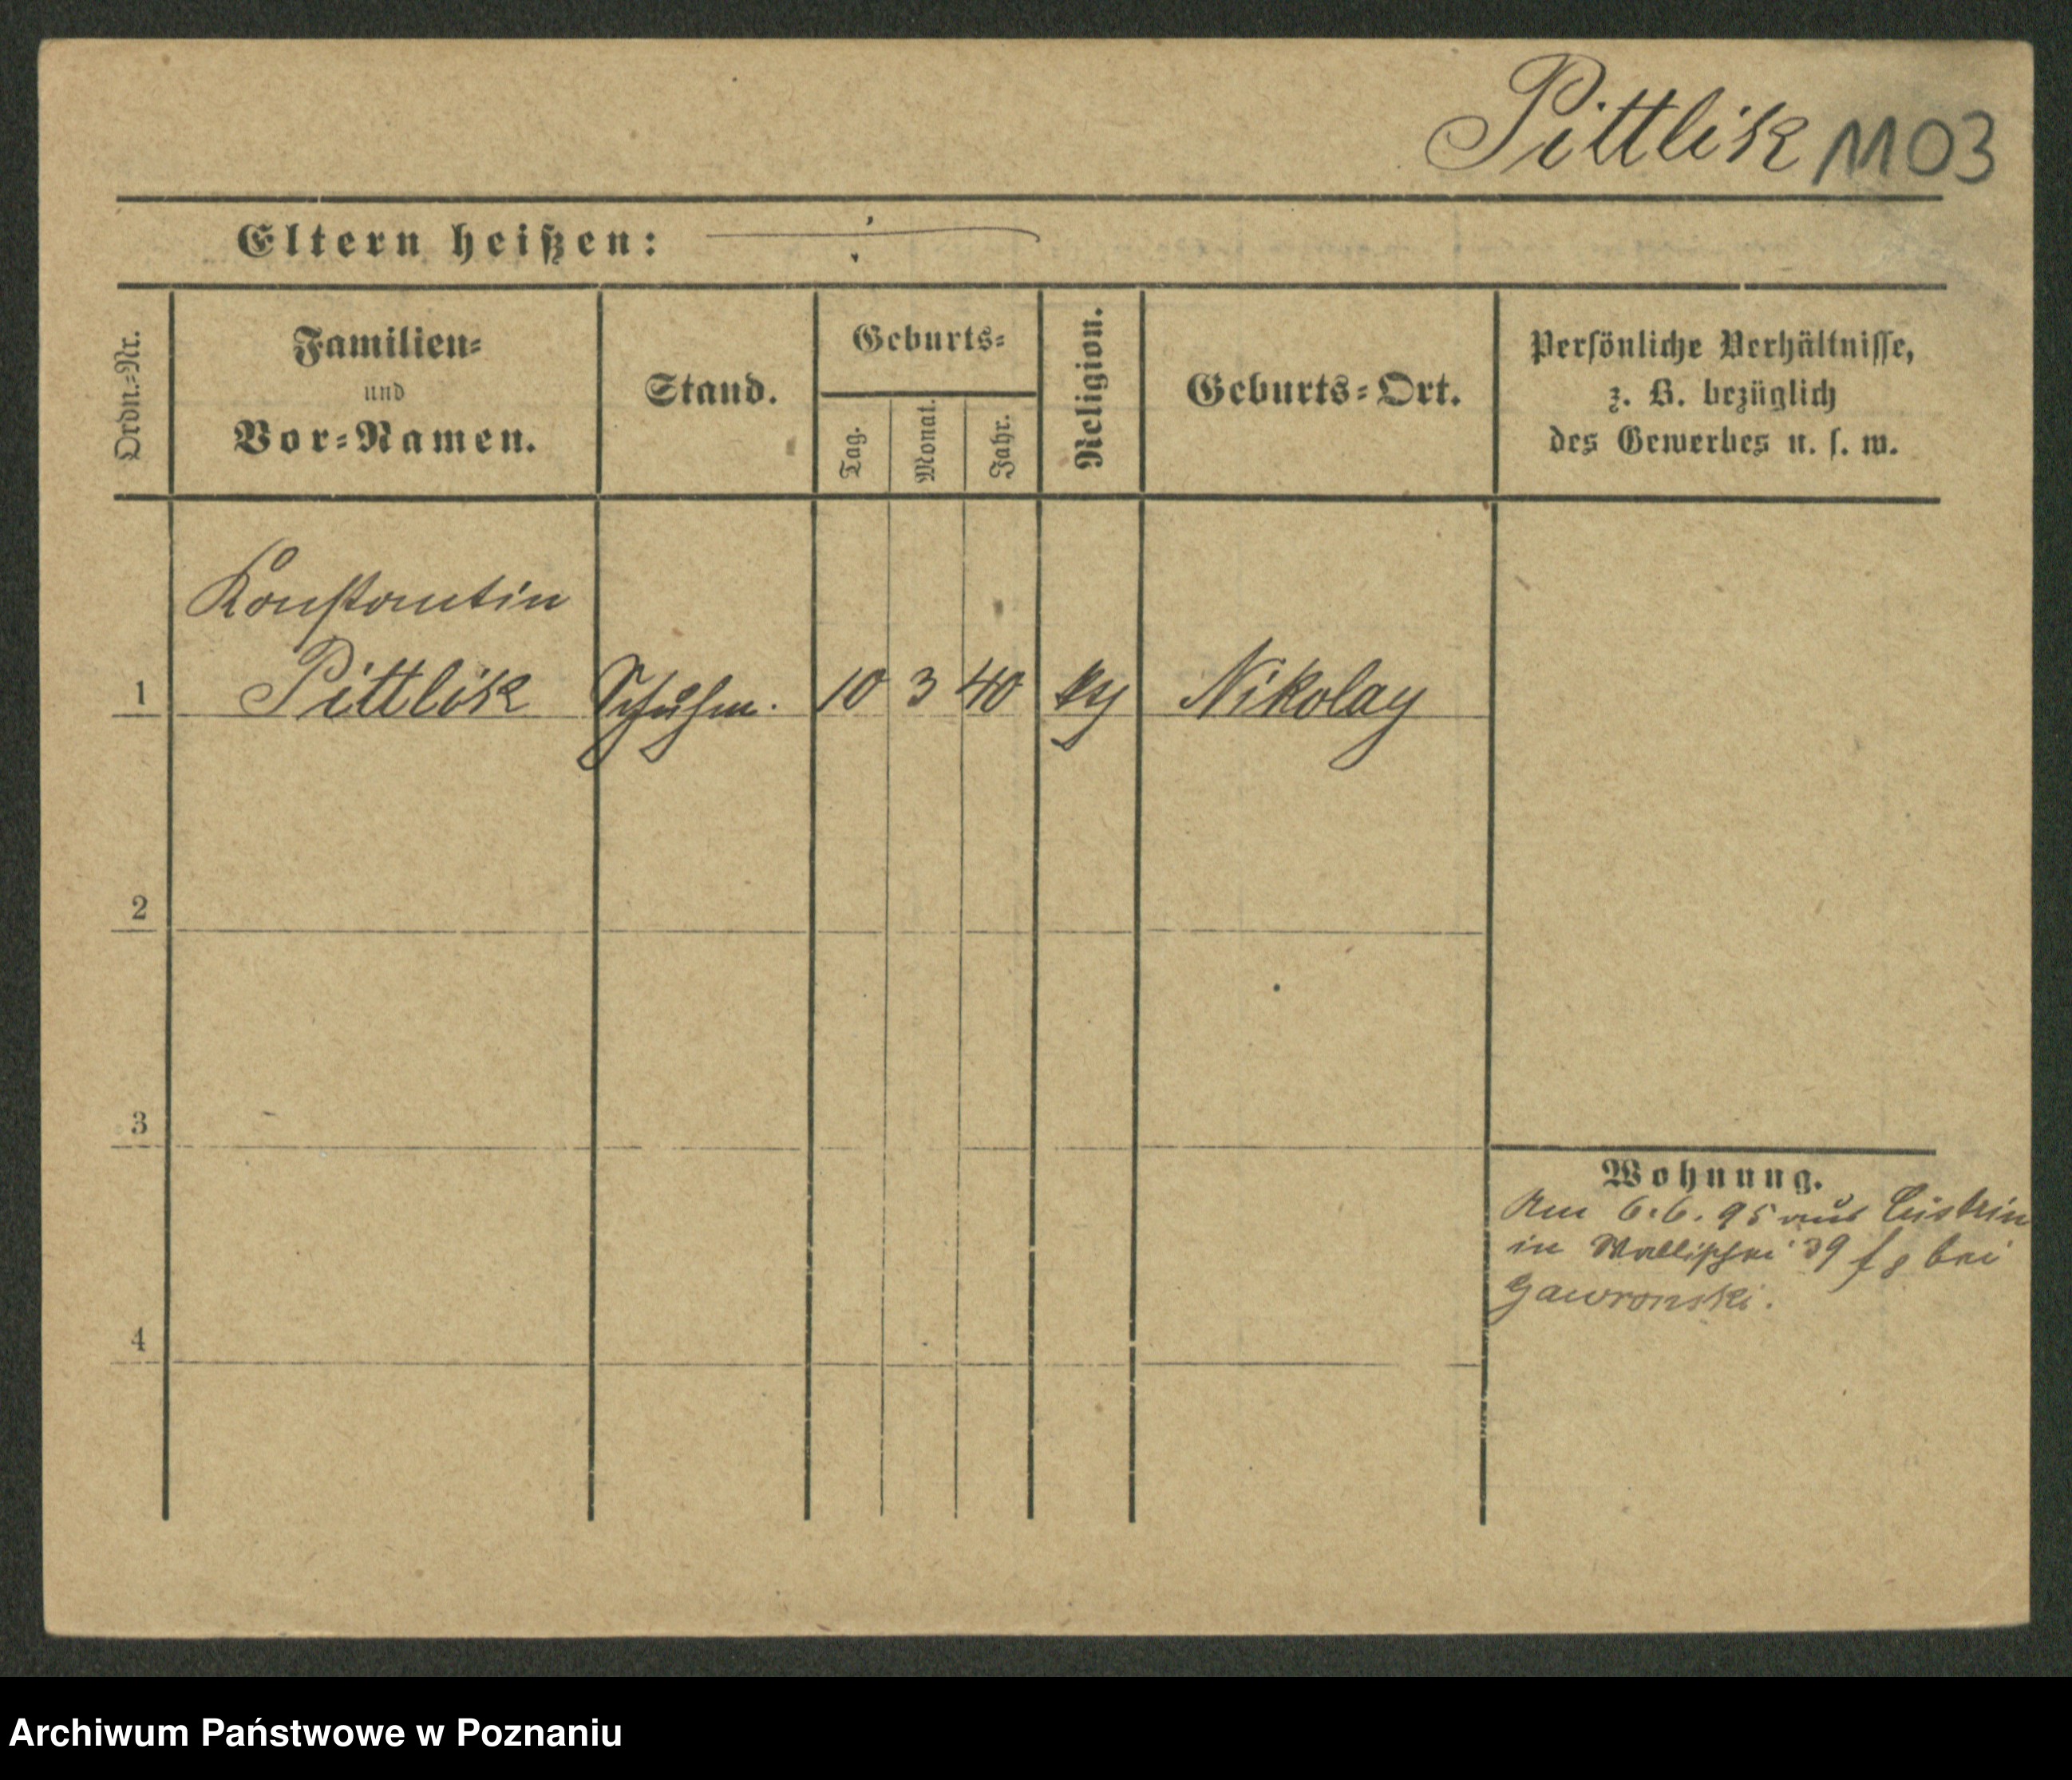 Pittlik 1103
Eltern heißen: ÷
Ordn.-Nr.
Familien-
und
Vor-Namen.
Stand.
Geburts-
Tag.
Monat.
Jahr.
Religion.
Geburts-Ort.
Persönliche Verhältnisse,
z. B. bezüglich
des Gewerbes u. s. w.
Konstantin
1 Pittlik Schuhm. 10 3 40 Nikolay
2
3
4
Wohnung.
Am 6.6.95 aus Cüstrin
in Wallischei 39 bei
Gawronski.
Archiwum Państwowe w Poznaniu